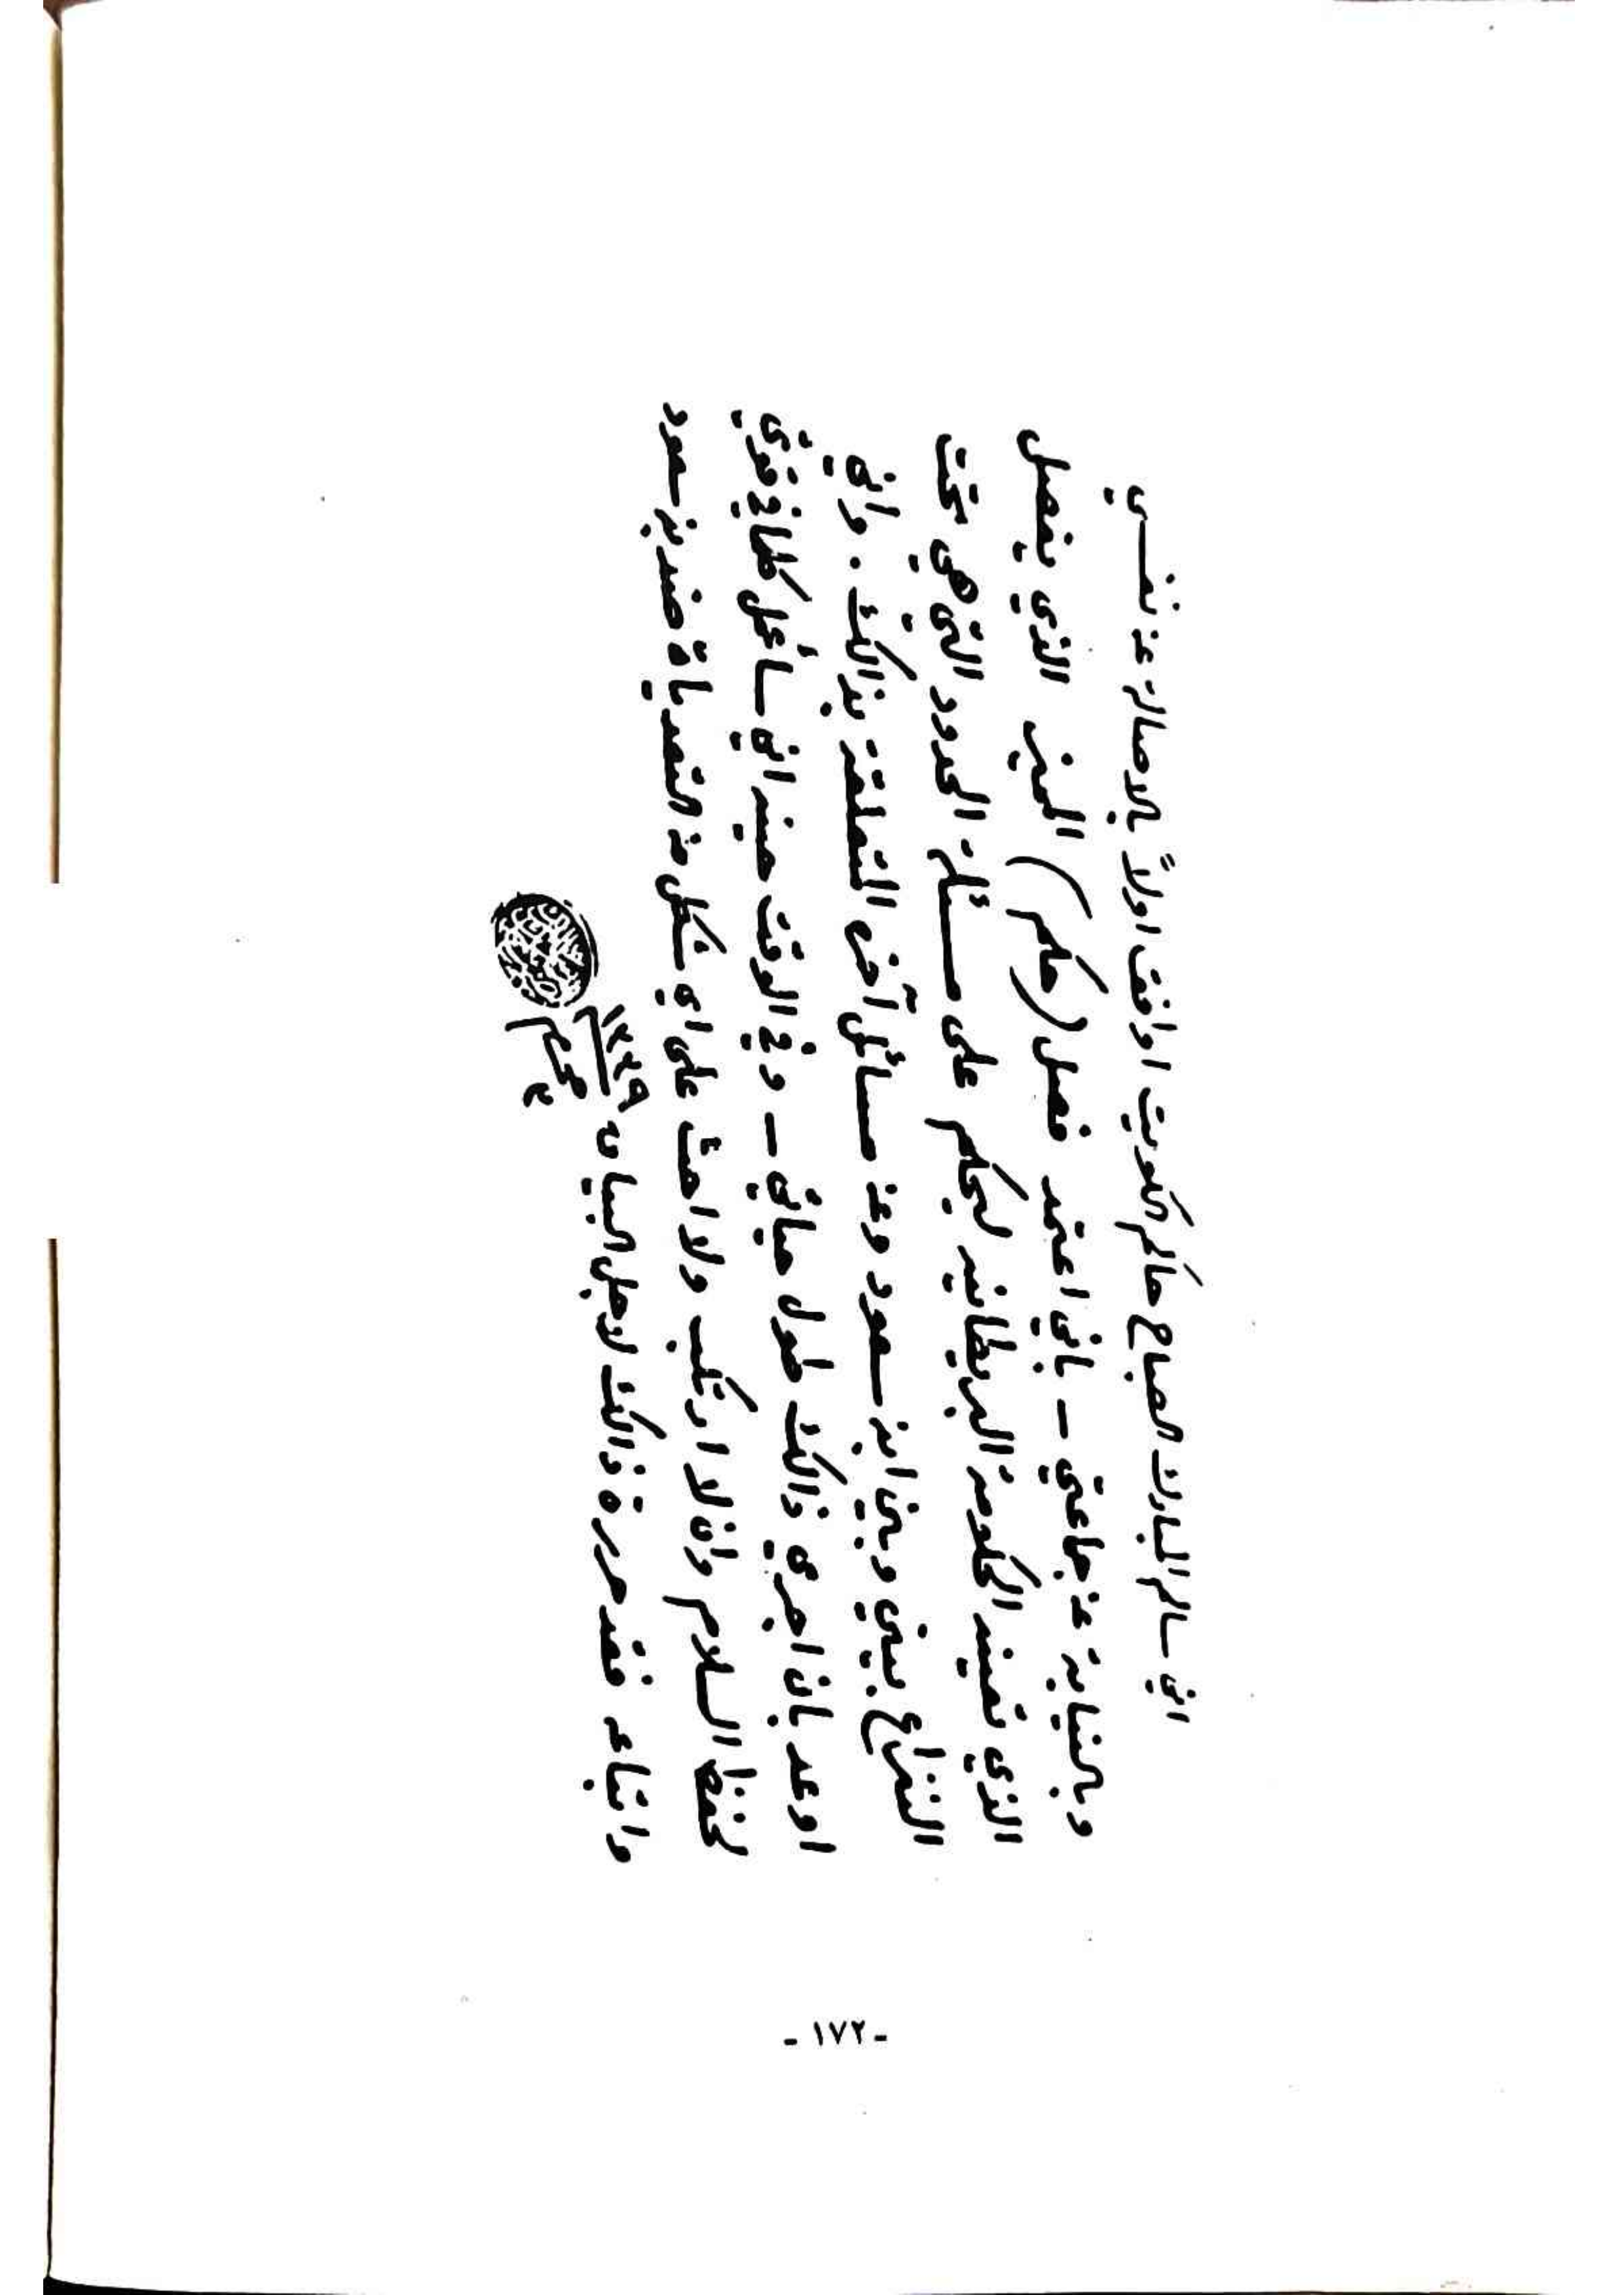 اني سالم المبارك الصباح حاكم الكويت اوافق اولاً بالاصالة عن نفسي
وبالنيابة عن جماعتي ــ باني اعتمد فصل (حكم) المميز الذي يفصل
الذي تعينه الحكومة البريطانيه ليحكم على مسئلة الحدود التي هي تحت
النزاع بيني وبين ابن سعود وعن مسائل آخر المتعلقة بذالك . واني
اوعد بان اجري ذالك طول حياتي ــ وفي الوقت حينه اني سأعمل كلما في قوتي
لحفظ السلام وان لا ارتكب ولا احث على اي شكل من التعديات ضد بن سعود
واتباعه فقد حررة ذالك لاجل البيان
١٣٣٩
٢ محرم
- ١٧٢ -